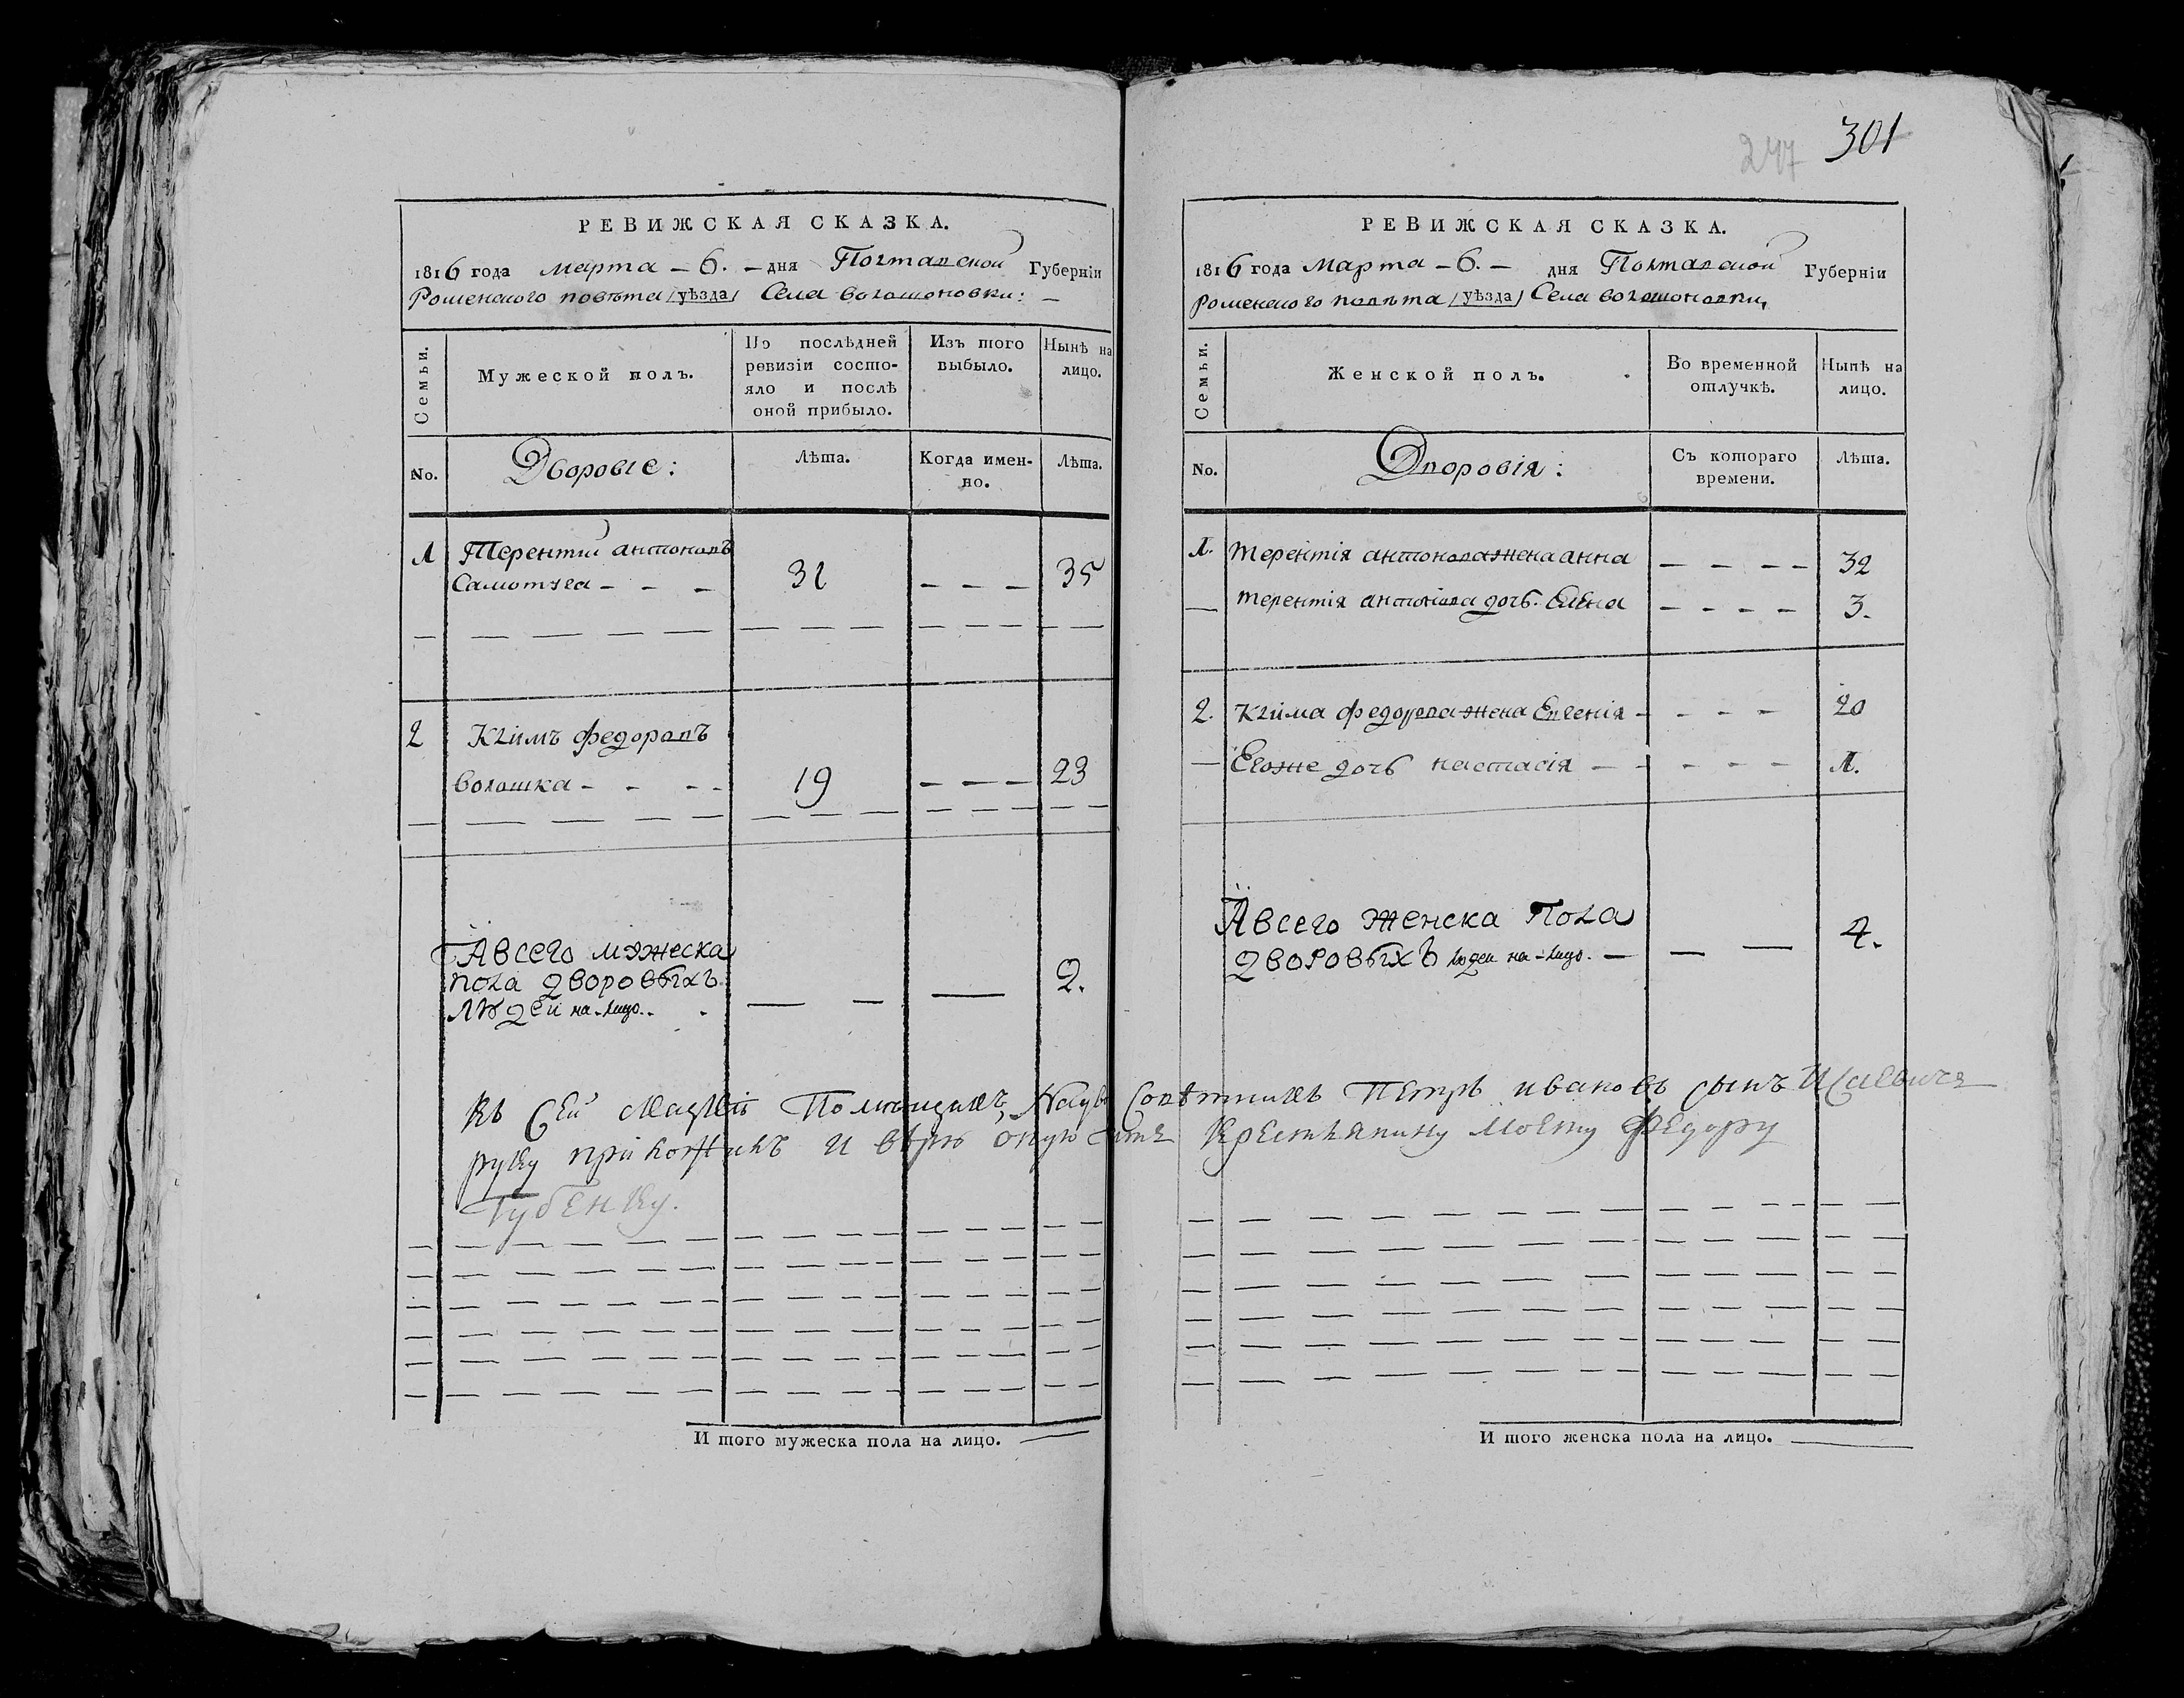 РЕВИЖСКАЯ СКАЗКА.
1816 года марта – 6. – дня Полтавской Губерніи
Роменского повѣта /уѣзда/ Села волошоновки: –
Семьи.
Мужеской полъ.
По послѣдней ревизіи состояло и послѣ оной прибыло.
Изъ того выбыло.
Нынѣ на лицо.
No.
Дворовіе:
Лѣта.
Когда именно.
Лѣта.
1 Терентий антоновъ
Самотуга – – – 31 – – – 35
2 Климъ федоровъ
волошка – – – – 19 – – – 23
А всего мужеска
пола дворовыхъ
людей на-лицо. – – – 2.
Къ сей Помѣщикъ, Надв: Совѣтникъ Петръ ивановъ сынъ
руку приложилъ и Крестьянину моему Федору
Губенку.
И того мужеска пола на лицо.
247 301
РЕВИЖСКАЯ СКАЗКА.
1816 года Марта – 6. – дня Полтавской Губерніи
Роменского повѣта /уѣзда/ Села волошоновки,
Семьи.
Женской полъ.
Во временной отлучкѣ.
Нынѣ на лицо.
No.
Дворовія:
Съ котораго времени.
Лѣта.
1. терентія антонова жена анна – – – – 32
терентія антонова дочь. Елена – – – – 3.
2. клима федорова жена Евгенія – – – – 20
Егоже дочь настасія – – – – – 1.
А всего женска пола
дворовыхъ людей на-лицо. – – – 4.
И того женска пола на лицо.